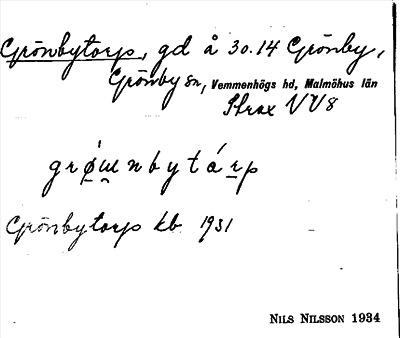 Grönbytorp, gd å 30.14 Grönby,
Grönby sn, Vemmenhögs hd, Malmöhus län
Strax VV8
grø̀ɯnbytárp
Grönbytorp kb 1931
NILS NILSSON 1934